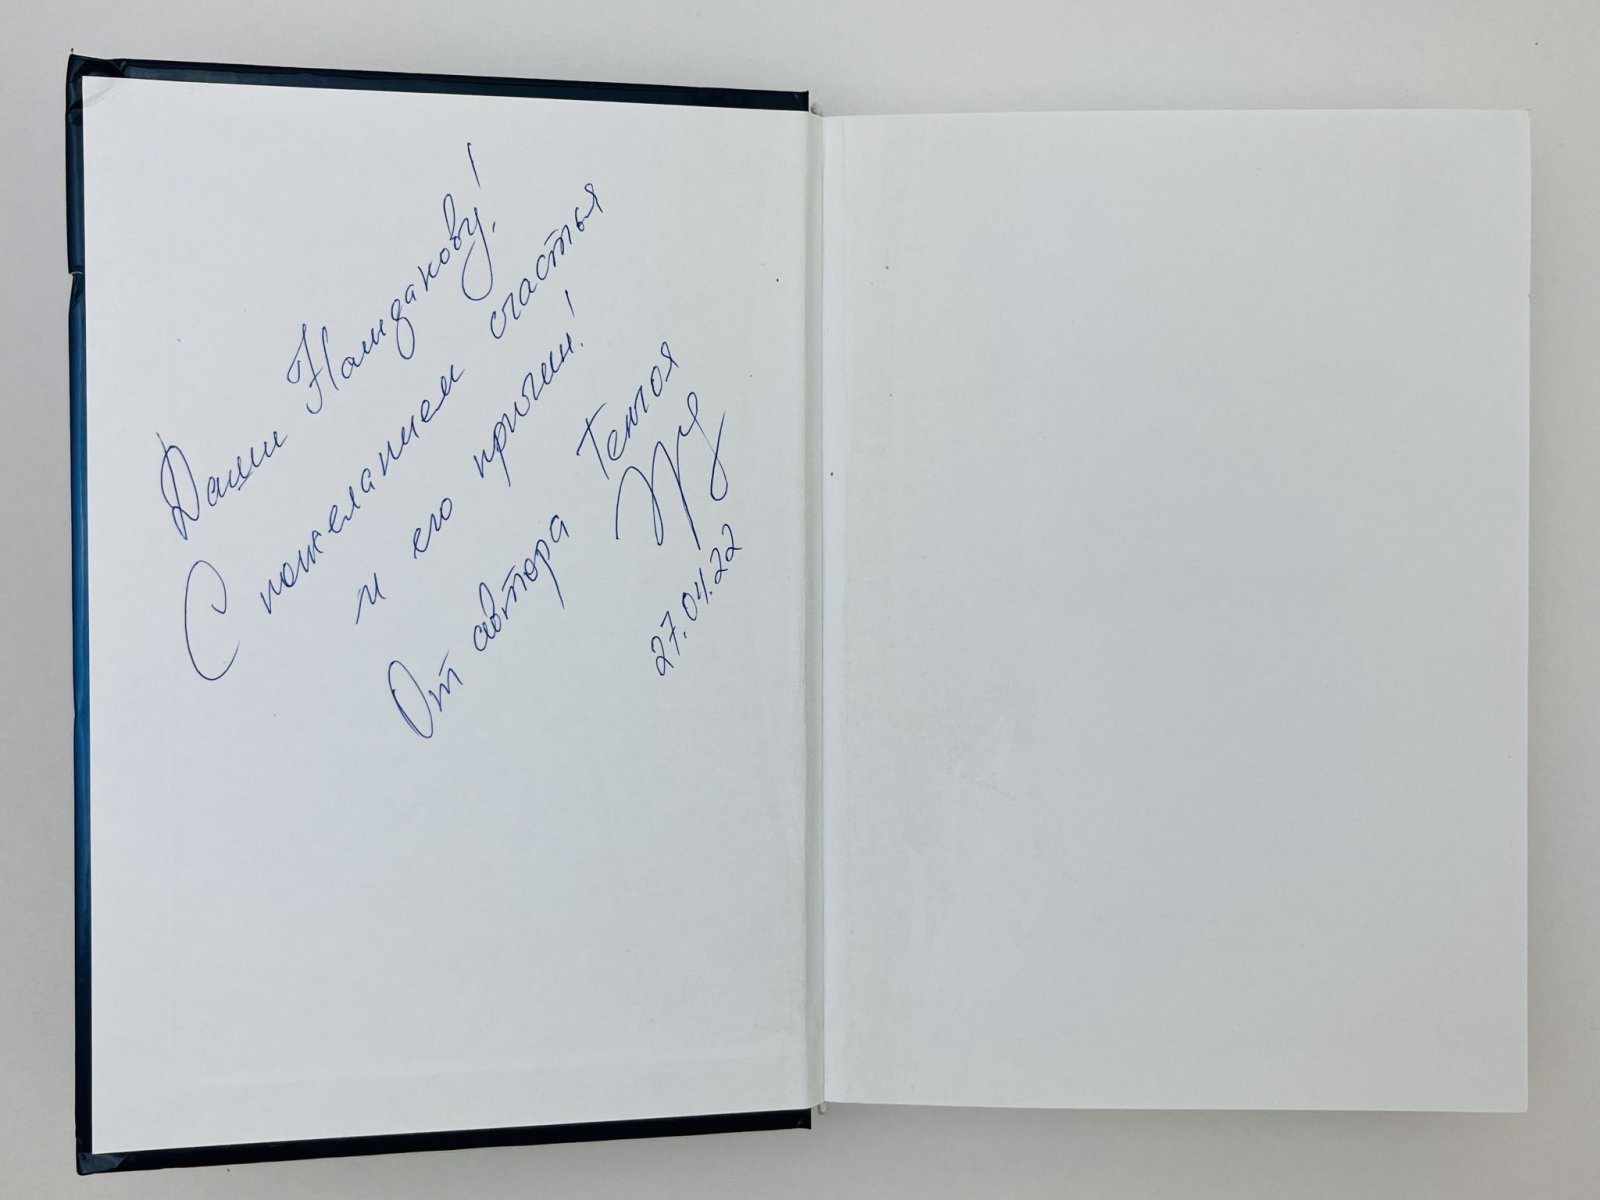 Даши Намдакову!
С пожеланием счастья
и его причин!
От автора
27.04.22